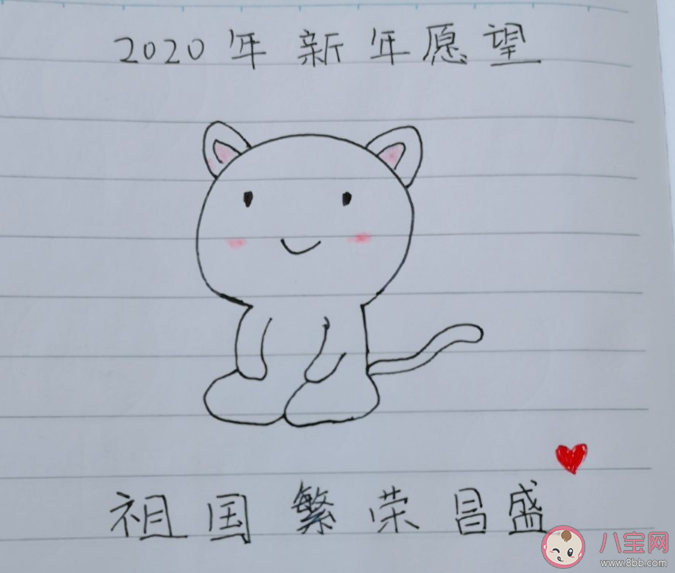 2020年新年愿望
祖国繁荣昌盛
八宝网
www.8bb.com